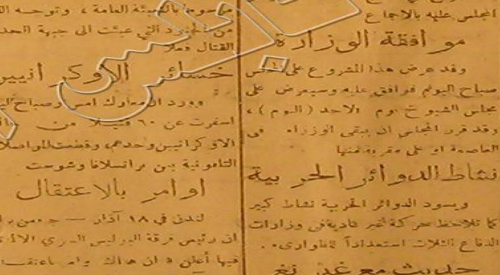 المجلس عليه بالاجماع
موافقة الوزارة
وقد عرض هذا المشروع على مجلس
صباح اليوم فوافق عليه وسيعرض على
مجلس الشيوخ يوم الاحد (اليوم)،
وقد قرر المجلس ان يبقى الوزراء في
العاصمة او على مقربة منها
نشاط الدوائر الحربية
ويسود الدوائر الحربية نشاط كبير
كما تلاحظ حركة غير عادية في وزارات
الدفاع الثلاث استعداداً للطوارىء.
حديث مع
العامة، وتوجه
من الجنود التي عبئت الى جبهة
القتال فعلا
خسائر الاوكرانيين
وورد ان معارك امس وصباح
اسفرت عن ٦٠ قتيلا من
الاوكرانيين وحدهم وقطعت المواصلات
التلفونية بين براتسلافا وشوست
اوامر بالاعتقال
لندن في ١٨ آذار —
ان رئيس فرقة البوليس السري
فيها أعلن ان هناك